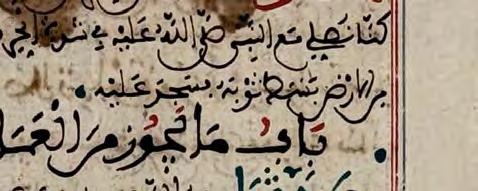 كنا نصلي مع النبي صلى الله عليه في شدة الحر
من الارض بسط ثوبه يسجد عليه
باب ما يجوز من العمل